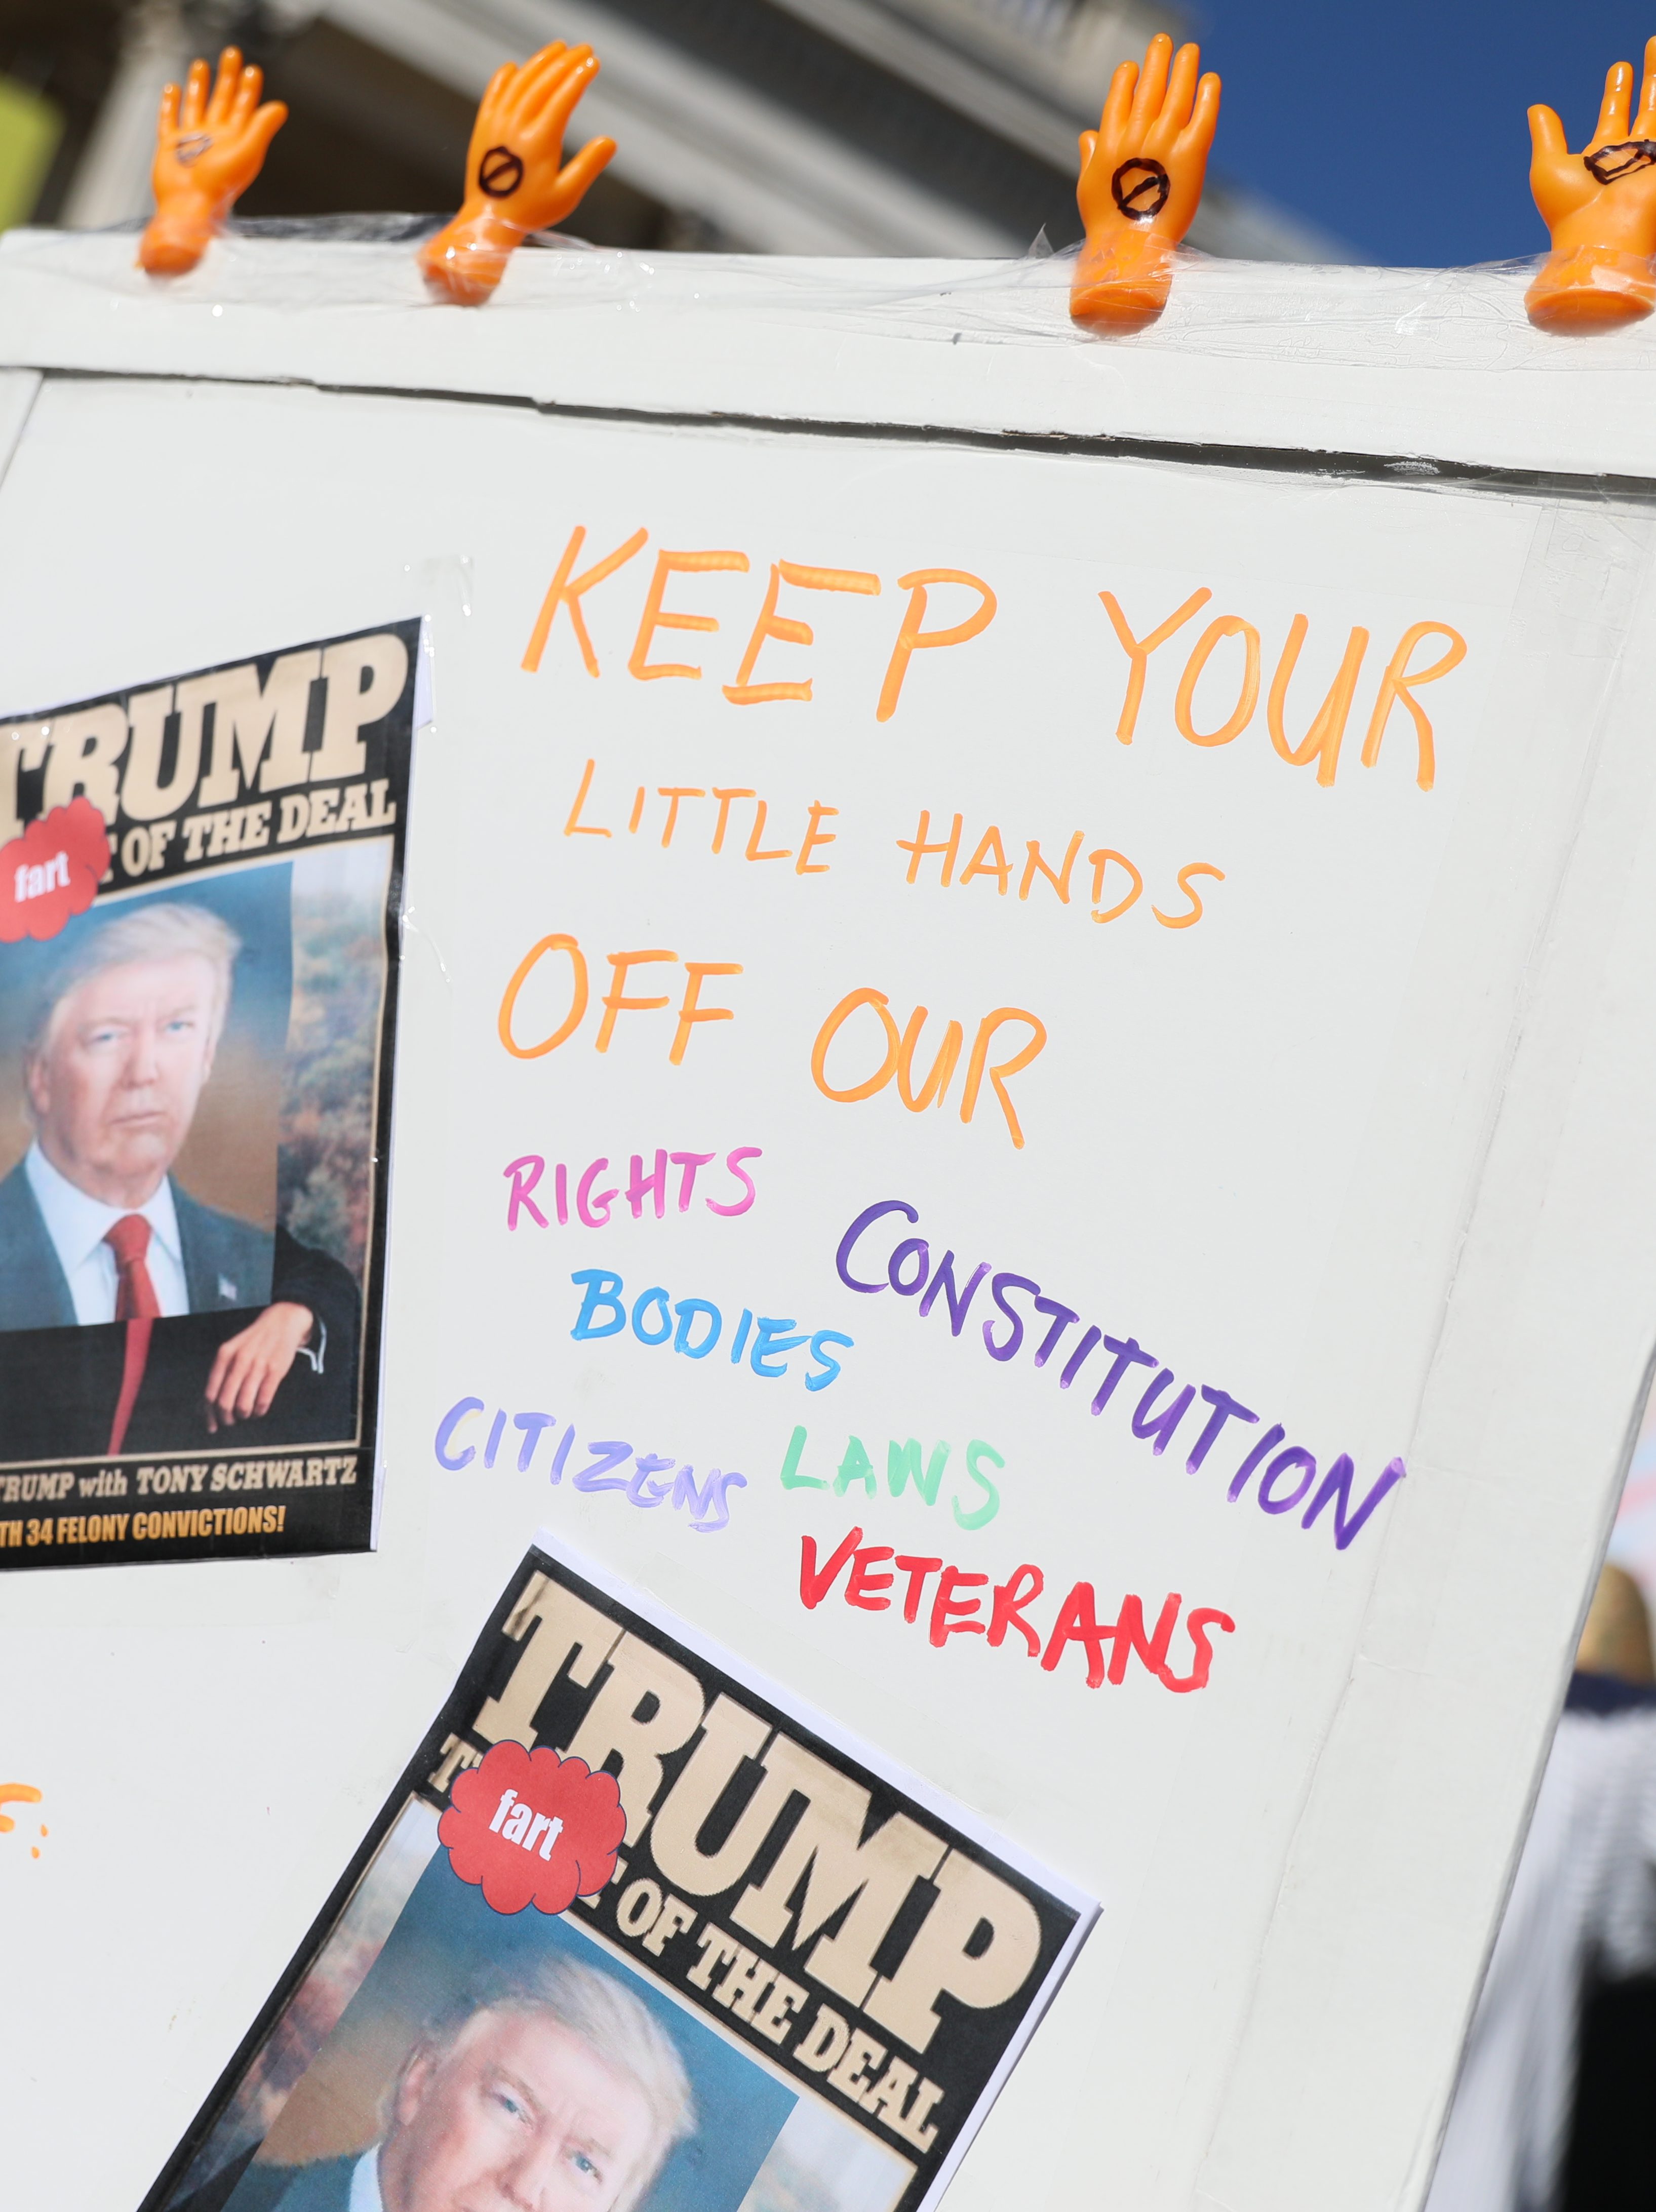 KEEP YOUR
LITTLE HANDS
OFF OUR
RIGHTS
CONSTITUTION
BODIES
CITIZENS
LAWS
VETERANS
TRUMP
OF THE DEAL
fart
TRUMP with TONY SCHWARTZ
34 FELONY CONVICTIONS!
TRUMP
fart
OF THE DEAL